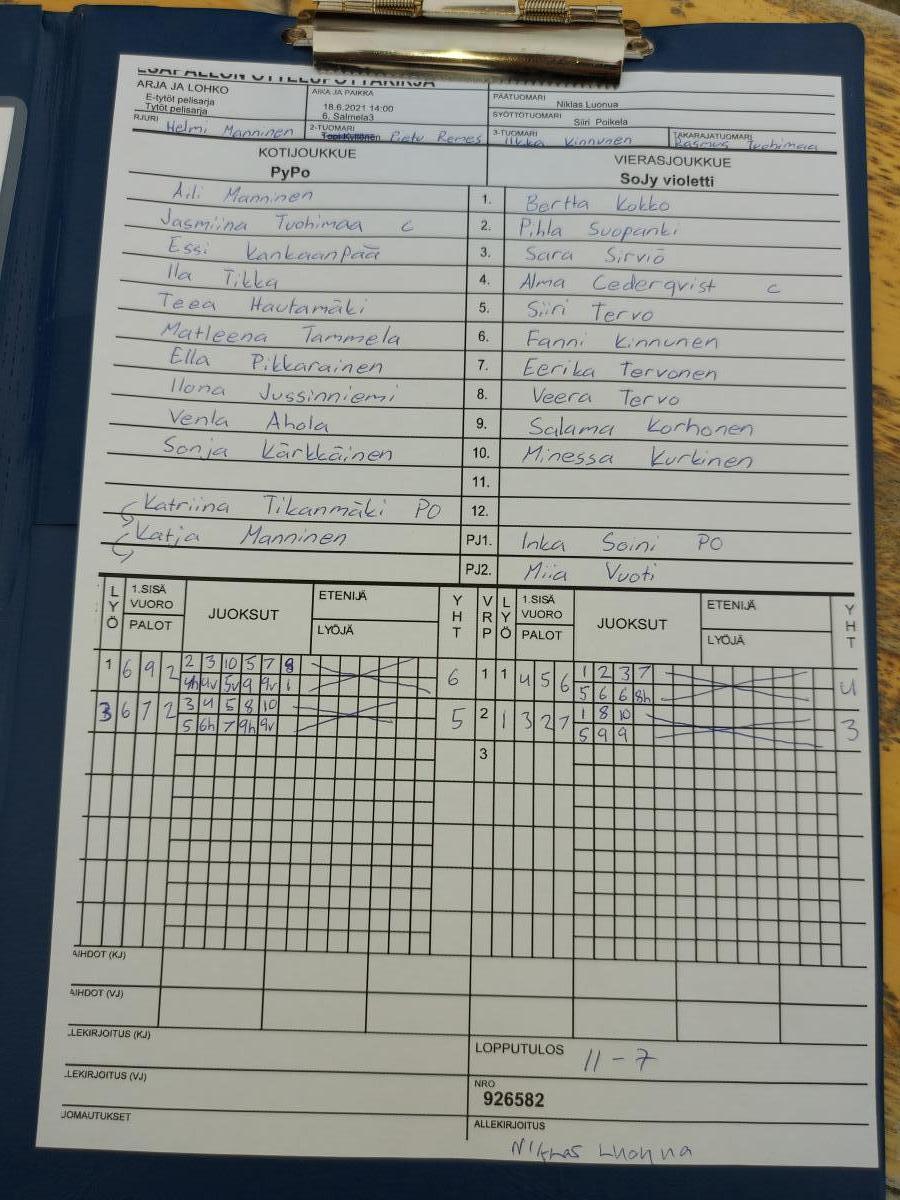 ESÄPALLON OTTELUPÖYTÄKIRJA
ARJA JA LOHKO
E-tytöt pelisarja
Tytöt pelisarja
AIKA JA PAIKKA
18.6.2021 14:00
6, Salmela3
PÄÄTUOMARI Niklas Luonua
SYÖTTÖTUOMARI Siiri Poikela
RJURI Helmi Manninen 2-TUOMARI Topi Kyllönen Pietu Remes 3-TUOMARI Ilkka Kinnunen TAKARAJATUOMARI Rasmus Tuohimaa
KOTIJOUKKUE VIERASJOUKKUE
PyPo SoJy violetti
Aili Manninen 1. Bertta Kokko
Jasmiina Tuohimaa c 2. Pihla Suopanki
Essi Kankaanpää 3. Sara Sirviö
Ila Tikka 4. Alma Cederqvist c
Teea Hautamäki 5. Siiri Tervo
Matleena Tammela 6. Fanni Kinnunen
Ella Pikkarainen 7. Eerika Tervonen
Ilona Jussinniemi 8. Veera Tervo
Venla Ahola 9. Salama Korhonen
Sonja Kärkkäinen 10. Minessa Kurkinen
11.
Katriina Tikanmäki PO 12.
Katja Manninen PJ1. Inka Soini PO
PJ2. Miia Vuoti
LYÖ 1.SISÄ VUORO PALOT JUOKSUT ETENIJÄ LYÖJÄ YHT VRP LYÖ 1.SISÄ VUORO PALOT JUOKSUT ETENIJÄ LYÖJÄ YHT
1 6 9 2 2 3 10 5 7 8 6 1 1 4 5 6 1 2 3 7 4
4h 4v 5v 9 9v 1 5 6 6 8h
3 6 7 2 3 4 5 8 10 5 2 1 3 2 7 1 8 10 3
5 6h 7 9h 9v 5 9 9
3
AIHDOT (KJ)
AIHDOT (VJ)
LEKIRJOITUS (KJ)
LOPPUTULOS 11-7
LEKIRJOITUS (VJ)
NRO
926582
UOMAUTUKSET
ALLEKIRJOITUS
Niklas Luonua